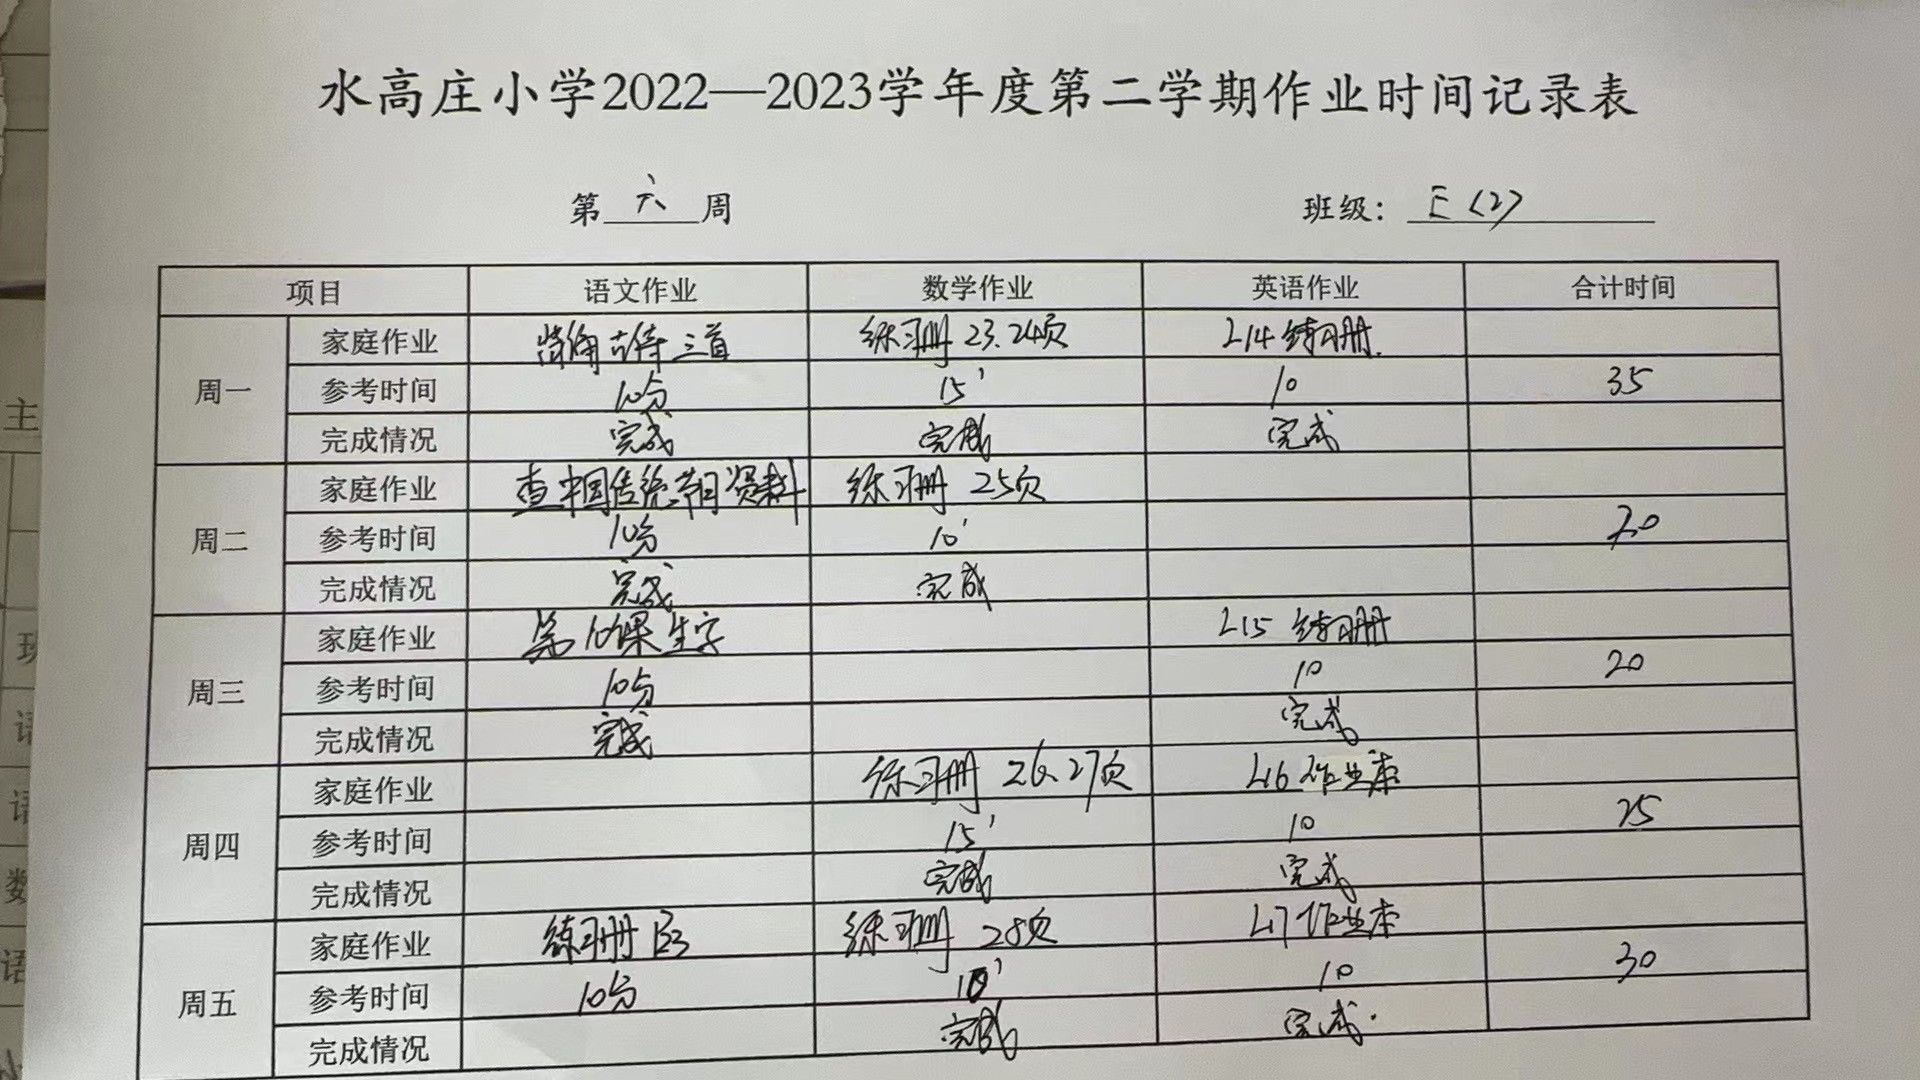 水高庄小学2022—2023学年度第二学期作业时间记录表
第 六 周 班级： 三(2)
项目 语文作业 数学作业 英语作业 合计时间
周一
家庭作业 背诵古诗三首 练习册 23.24页 L14 练习册.
参考时间 10分 15' 10 35
完成情况 完成 完成 完成
周二
家庭作业 查中国传统节日资料 练习册 25页
参考时间 10分 10' 20
完成情况 完成 完成
周三
家庭作业 第10课生字 L15 练习册
参考时间 10分 10 20
完成情况 完成 完成
周四
家庭作业 练习册 26.27页 L16 作业本
参考时间 15' 10 25
完成情况 完成 完成
周五
家庭作业 练习册 练习册 28页 L17 作业本
参考时间 10分 10' 10 30
完成情况 完成 完成.
主